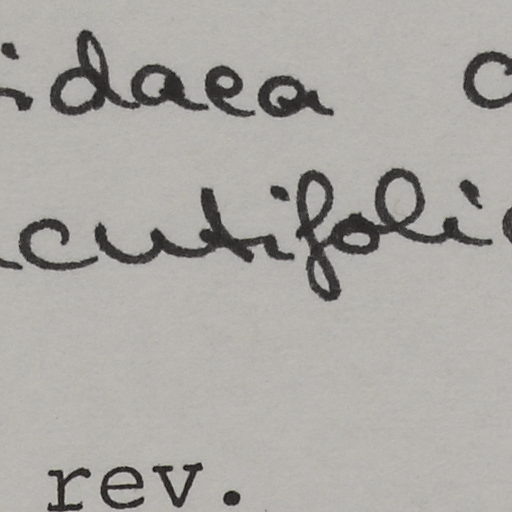 idaea
cutifoli
rev.